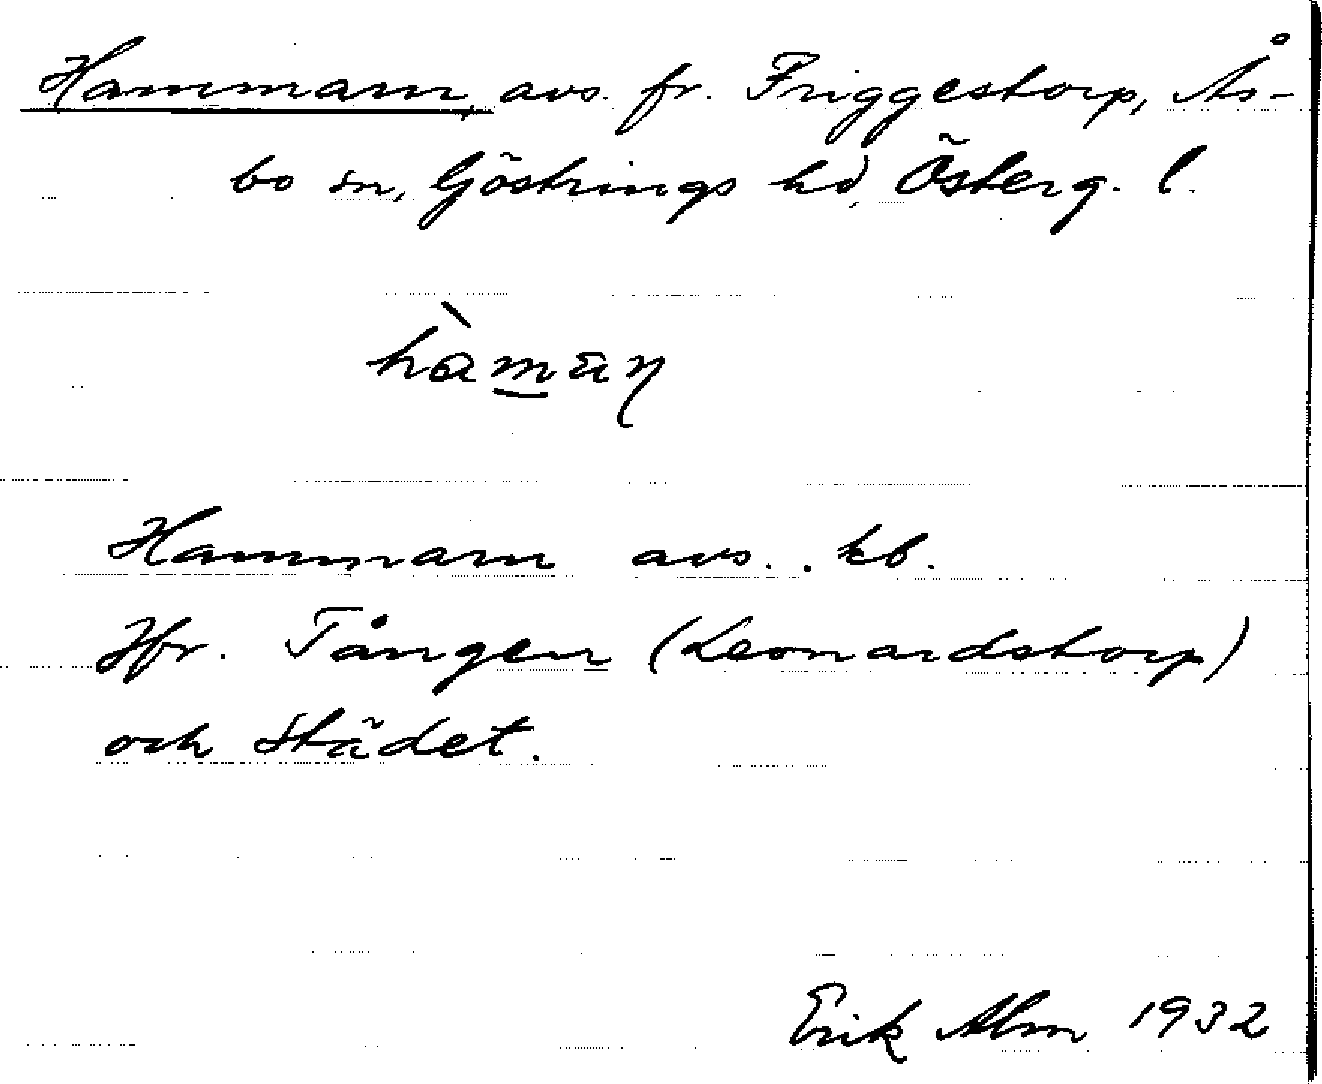 Hammarn, avs. fr. Friggestorp, Ås-
bo sn, Göstrings hd, Österg. l.
hàman
Hammarn avs. . kb.
Jfr. Tången (Leonardstorp)
och Städet.
Erik Alm 1932